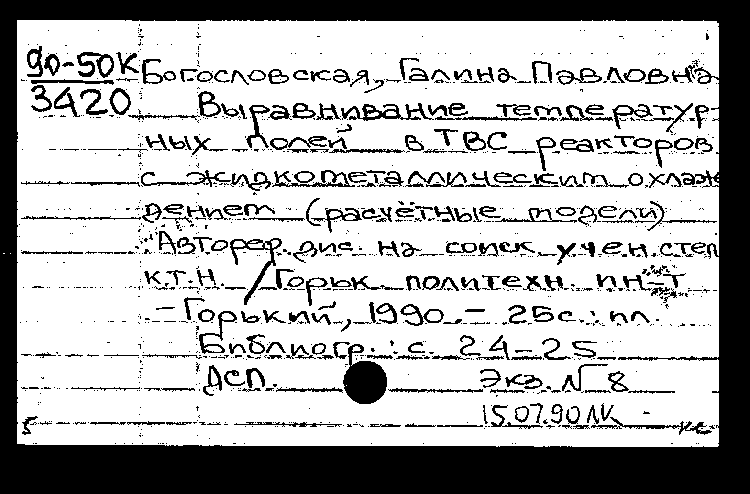 90-50К Богословская, Галина Павловна
3420 Выравнивание температур-
ных полей в ТВС реакторов
с жидкометаллическим охлаж
дением (расчётные модели)
Автореф. дис. на соиск учен. степ
к.т.н. / Горьк. политехн. ин-т
- Горький, 1990. - 25с.: ил.
Библиогр.: с. 24-25
ДСП. Экз. № 8
15.07.90 ЛК
5 КС